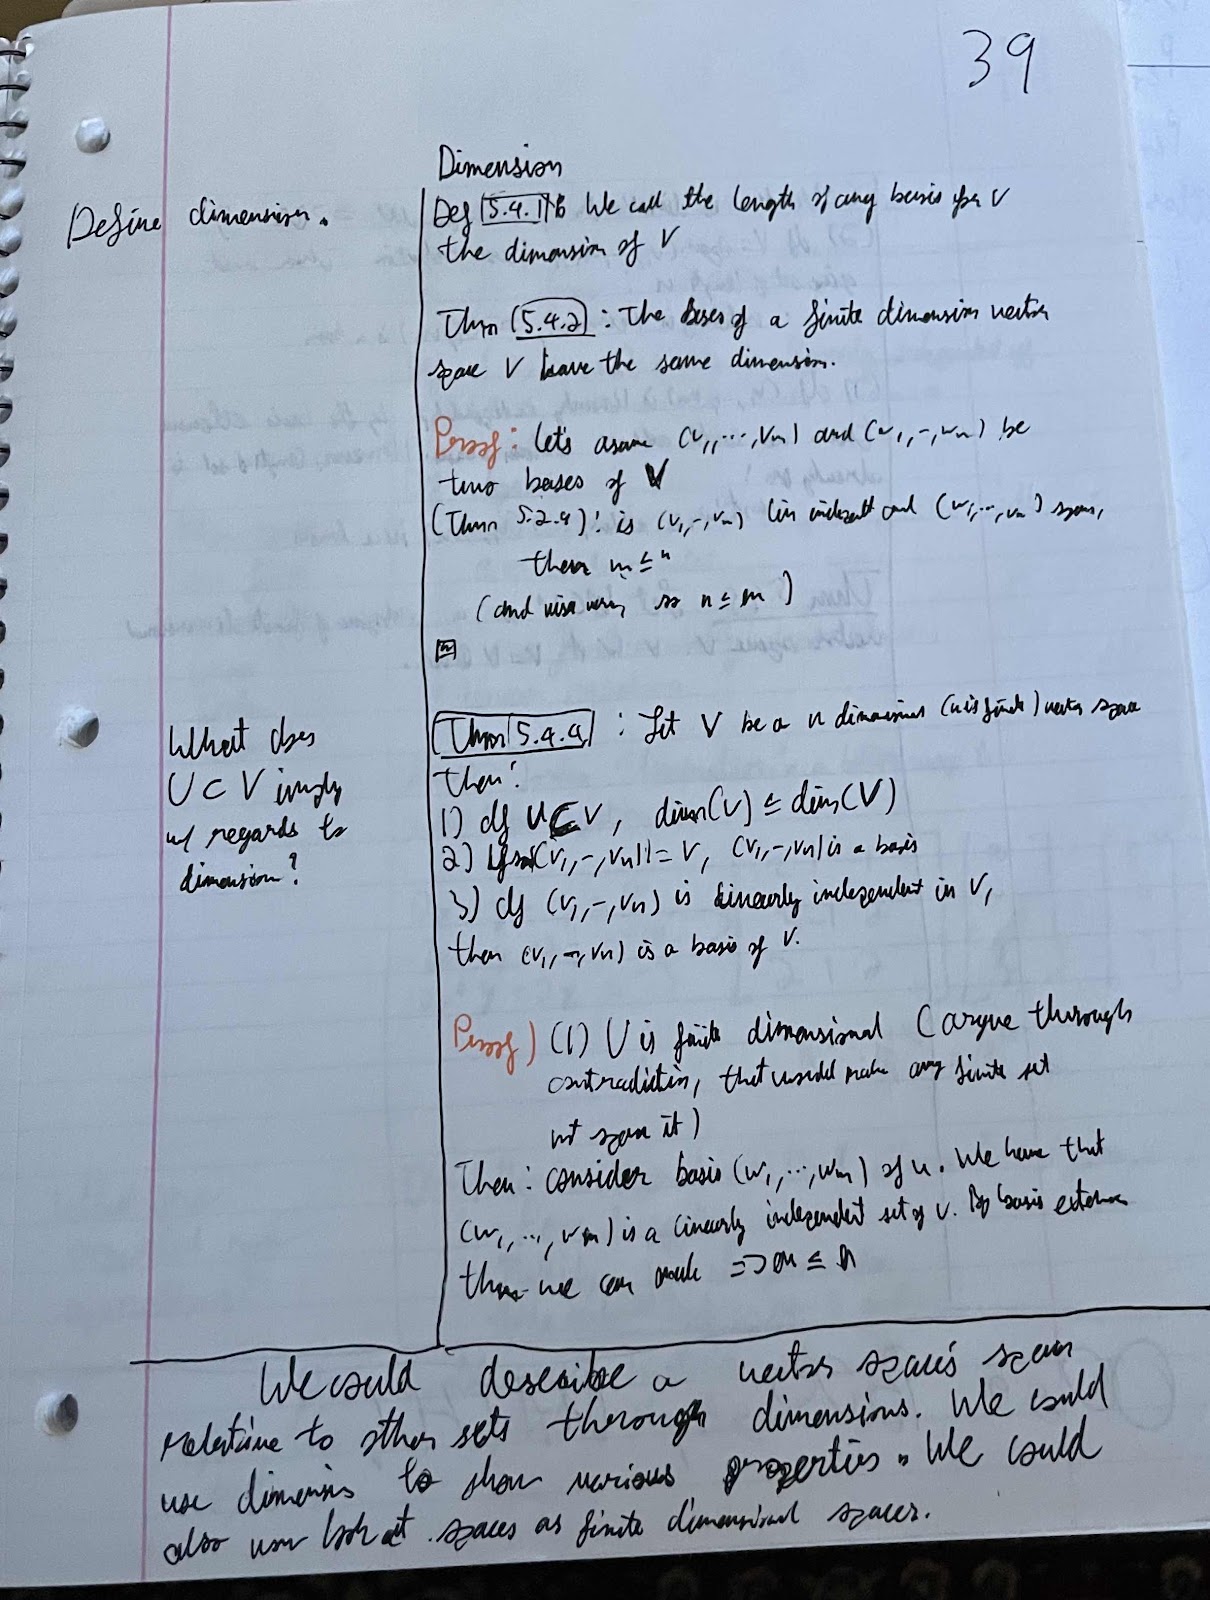 39
Dimension
Define dimension.
Def 5.4.1 We call the length of any basis for V
the dimension of V
Thm 5.4.2 : The bases of a finite dimension vector
space V have the same dimension.
Proof: let's assume (v1, ..., vm) and (w1, -, wn) be
two bases of V
(Thm 5.2.9): is (v1, -, vm) lin indepent and (w1, ..., vn) span,
then m ≤ n
(and visa versa, so n ≤ m)
What does
U ⊂ V imply
w/ regards to
dimension?
Thm 5.4.4 : Let V be a n dimensional (n is finite) vector space
then:
1) If U ⊂ V, dim(U) ≤ dim(V)
2) If span(v1, -, vn) = V, (v1, -, vn) is a basis
3) If (v1, -, vn) is linearly independent in V,
then (v1, -, vn) is a basis of V.
Proof) (1) U is finite dimensional (argue through
contradiction, that would make any finite set
not span it)
Then: consider basis (w1, ..., wm) of u. We have that
(w1, ..., wm) is a linearly independent set of V. By basis extension
then we can make => m ≤ n
We could describe a vector space's span
relative to other sets through dimensions. We could
use dimensions to show various properties. We could
also look at spaces as finite dimensional spaces.